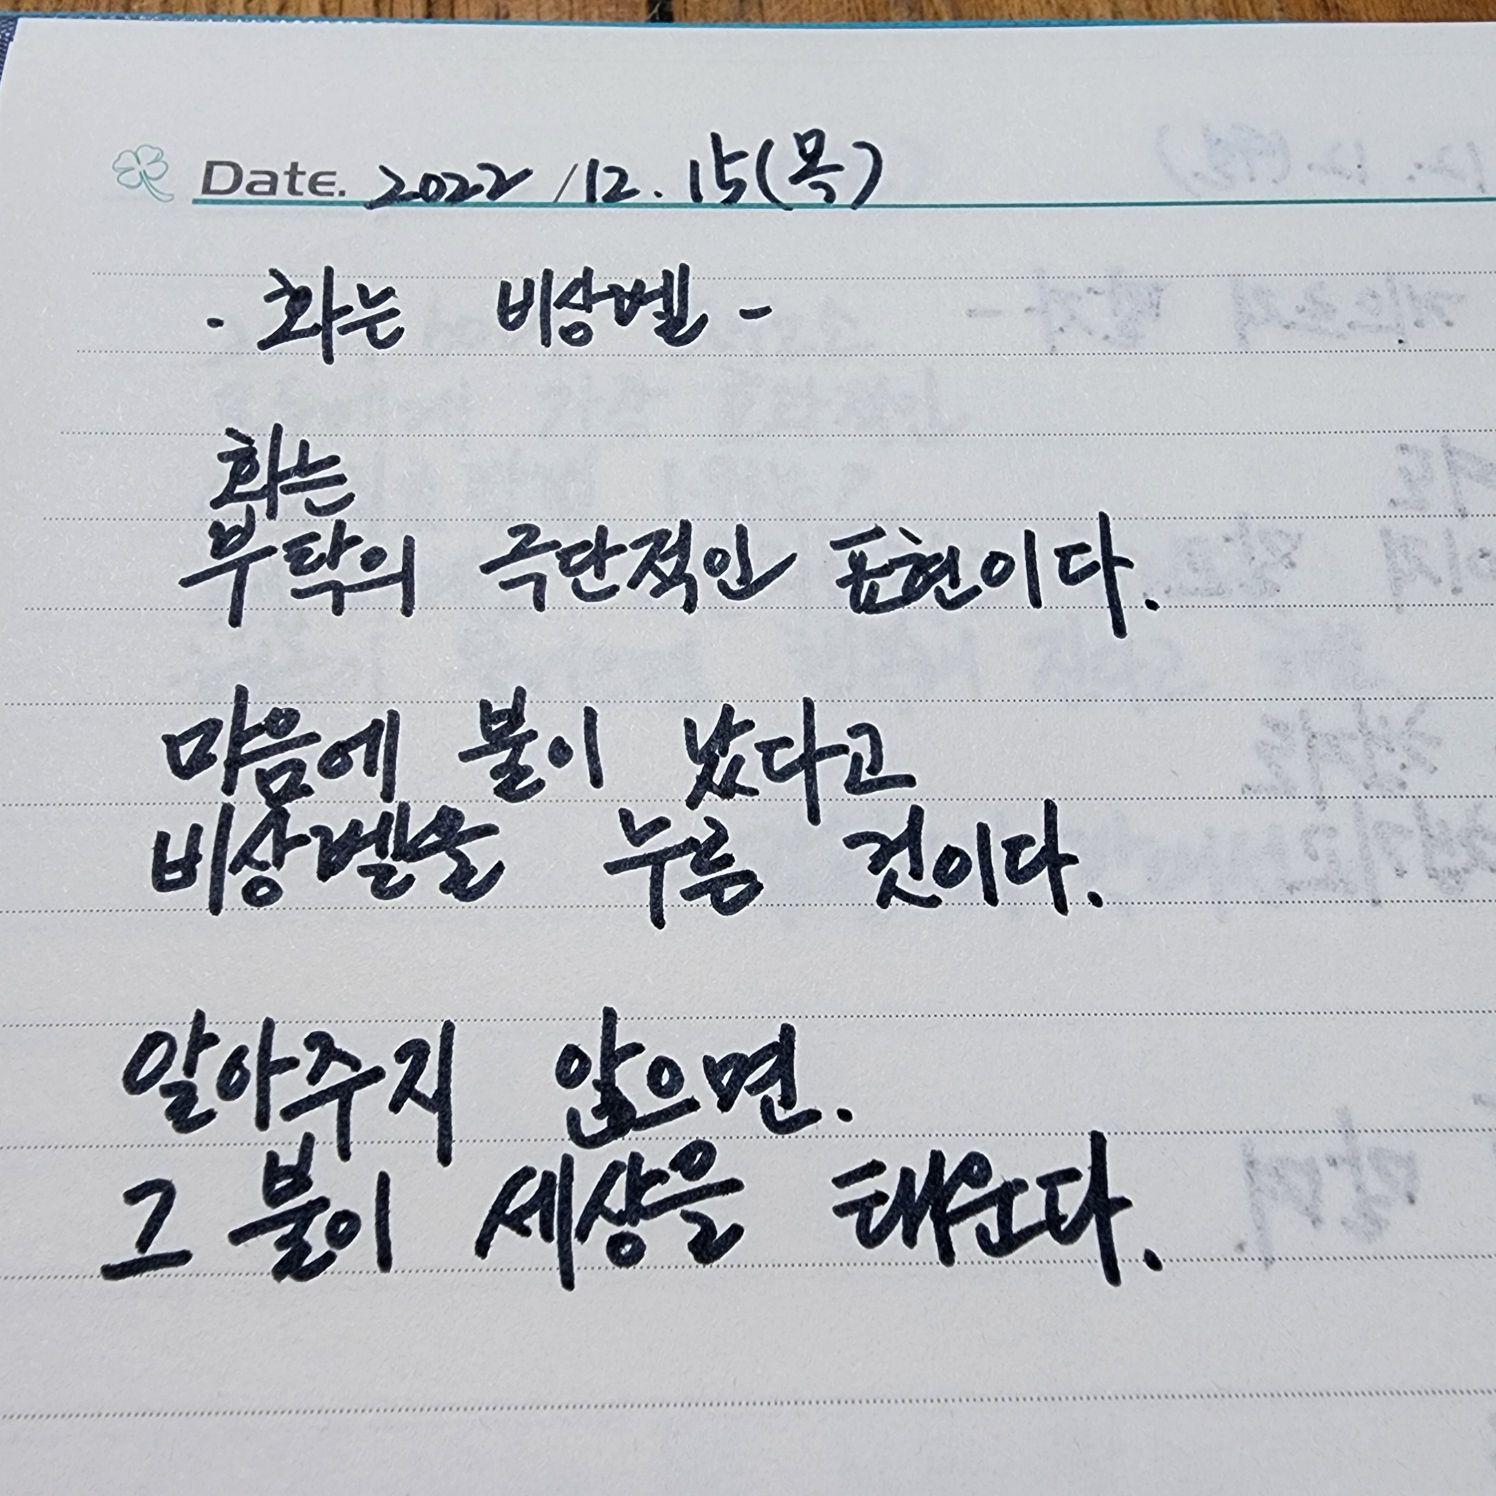 Date. 2022 /12. 15(목)
- 화는 비상벨 -
화는
부탁의 극단적인 표현이다.
마음에 불이 났다고
비상벨을 누름 것이다.
알아주지 않으면.
그 불이 세상을 태운다.